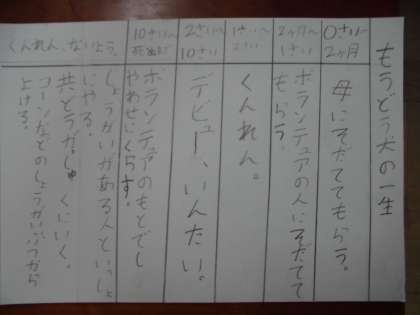 もうどう犬の一生
0さい〜
2ヶ月
母にそだててもらう。
2ヶ月〜
1さい
ボランデュアの人にそだてて
もらう。
1さい〜
2さい
くんれん。
2さい〜
10さい
デビュー、いんたい。
10さい〜
死ぬまで
ボランデュアのもとでし
やわせにくらす。
くんれん、ないよう。
しょうがいがある人といっしょ
にやる。
共どうがしゅくにいく。
コーンなどのしょうがいぶつから
よける。